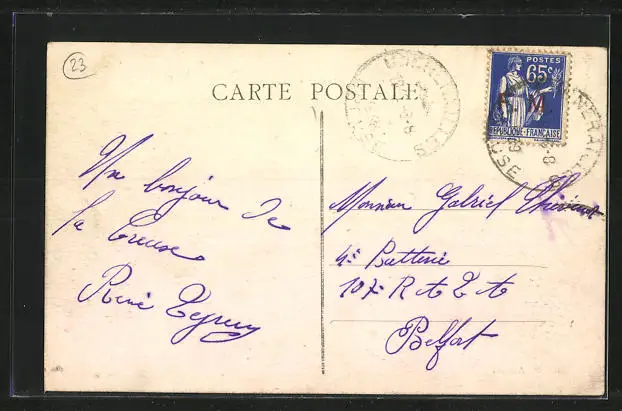 23
CARTE POSTALE
POSTES
65c
RÉPUBLIQUE FRANÇAISE
Un bonjour de
la Creuse
René
Monsieur Gabriel
4e Batterie
107e R A L A
Belfort